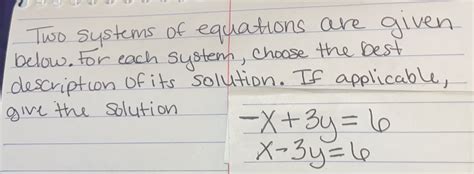 Two systems of equations are given
below. For each system, choose the best
description of its solution. If applicable,
give the solution
-x+3y=6
x-3y=6